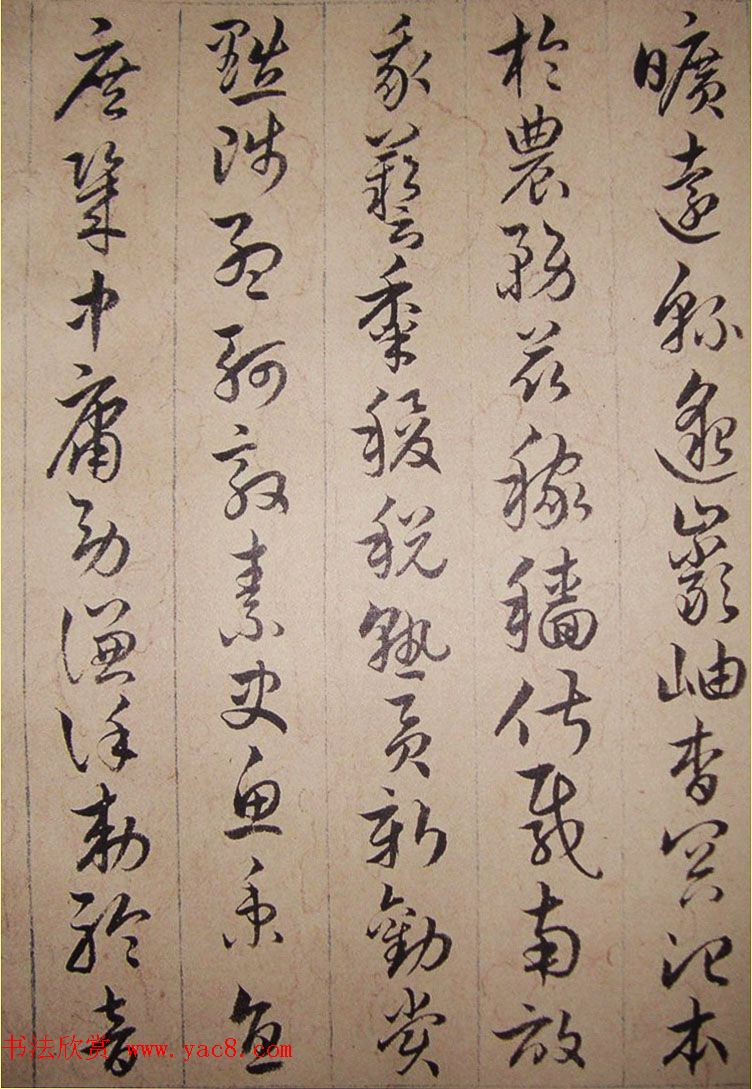 曠遠緜邈巖岫杳冥治本
於農務茲稼穡俶載南畝
我藝黍稷稅熟貢新勸賞
黜陟孟軻敦素史魚秉直
庶幾中庸勞謙謹敕聆音
书法欣赏 www.yac8.com